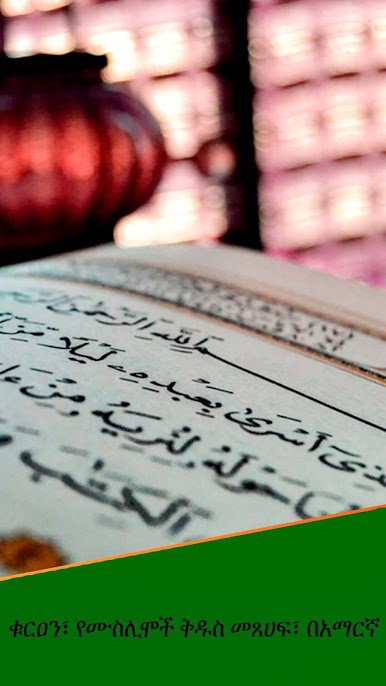 ٱللَّهِ ٱلرَّحْمَٰنِ
أَسْرَىٰ بِعَبْدِهِۦ لَيْلًا مِّنَ
حَوْلَهُۥ لِنُرِيَهُۥ مِنْ
ٱلْكِتَٰبَ
ቁርዐን፣ የሙስሊሞች ቅዱስ መጸሀፍ፣ በአማርኛ